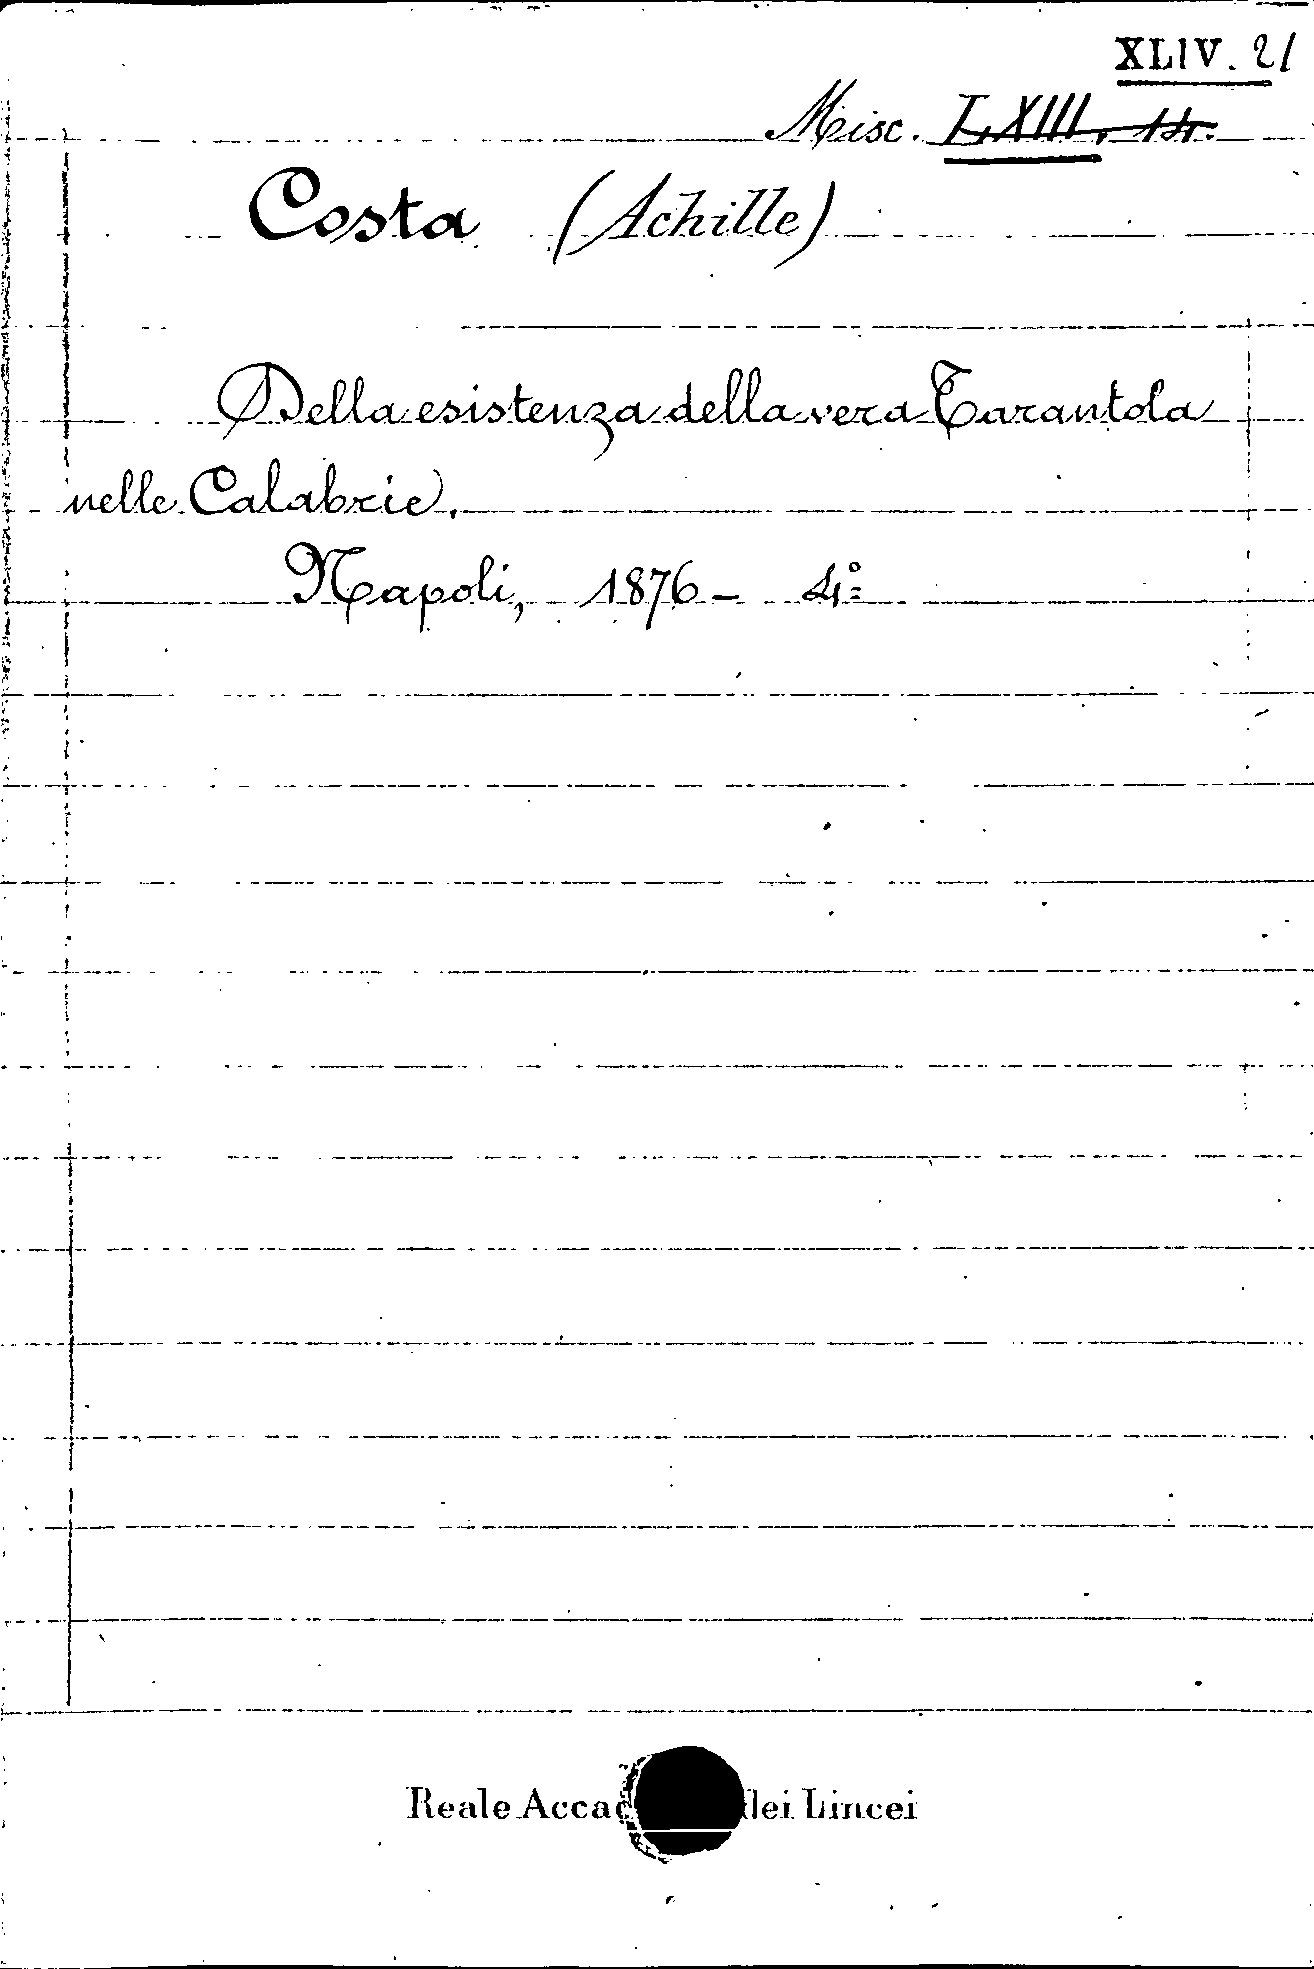 XLIV. 21
Misc. LXIII, 14.
Costa (Achille)
Della esistenza della vera Tarantola
nelle Calabrie.
Napoli, 1876 - 4º
Reale Accad dei Lincei